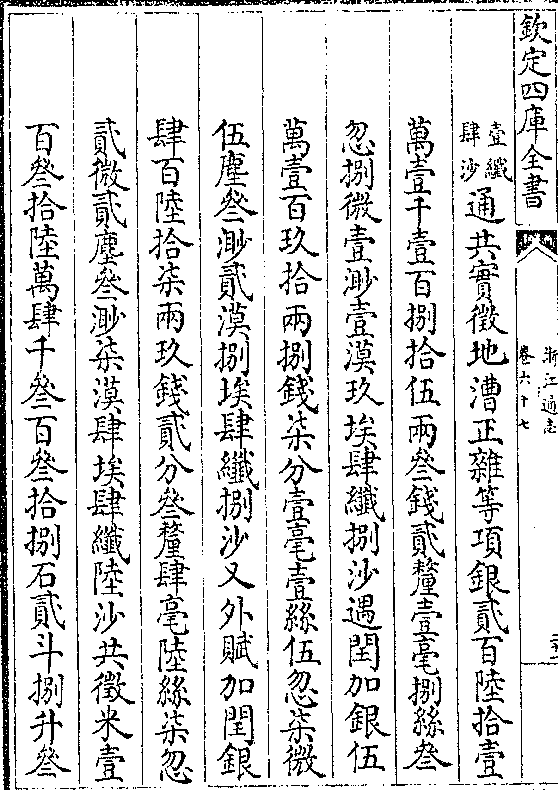 欽定四庫全書
浙江通志
卷六十七
壹纖
肆沙
通共實徵地漕正雜等項銀貳百陸拾壹
萬壹千壹百捌拾伍兩叁錢貳釐壹毫捌絲叁
忽捌微壹渺壹漠玖埃肆纖捌沙遇閏加銀伍
萬壹百玖拾兩捌錢柒分壹毫壹絲伍忽柒微
伍塵叁渺貳漠捌埃肆纖捌沙又外賦加閏銀
肆百陸拾柒兩玖錢貳分叁釐肆毫陸絲柒忽
貳微貳塵叁渺柒漠肆埃肆纖陸沙共徵米壹
百叁拾陸萬肆千叁百叁拾捌石貳斗捌升叁